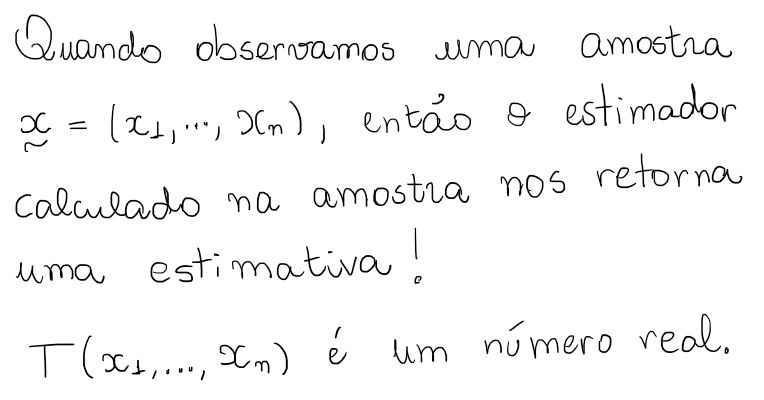 Quando observamos uma amostra
x̰ = (x₁,..., xₙ), então o estimador
calculado na amostra nos retorna
uma estimativa!
T(x₁,..., xₙ) é um número real.